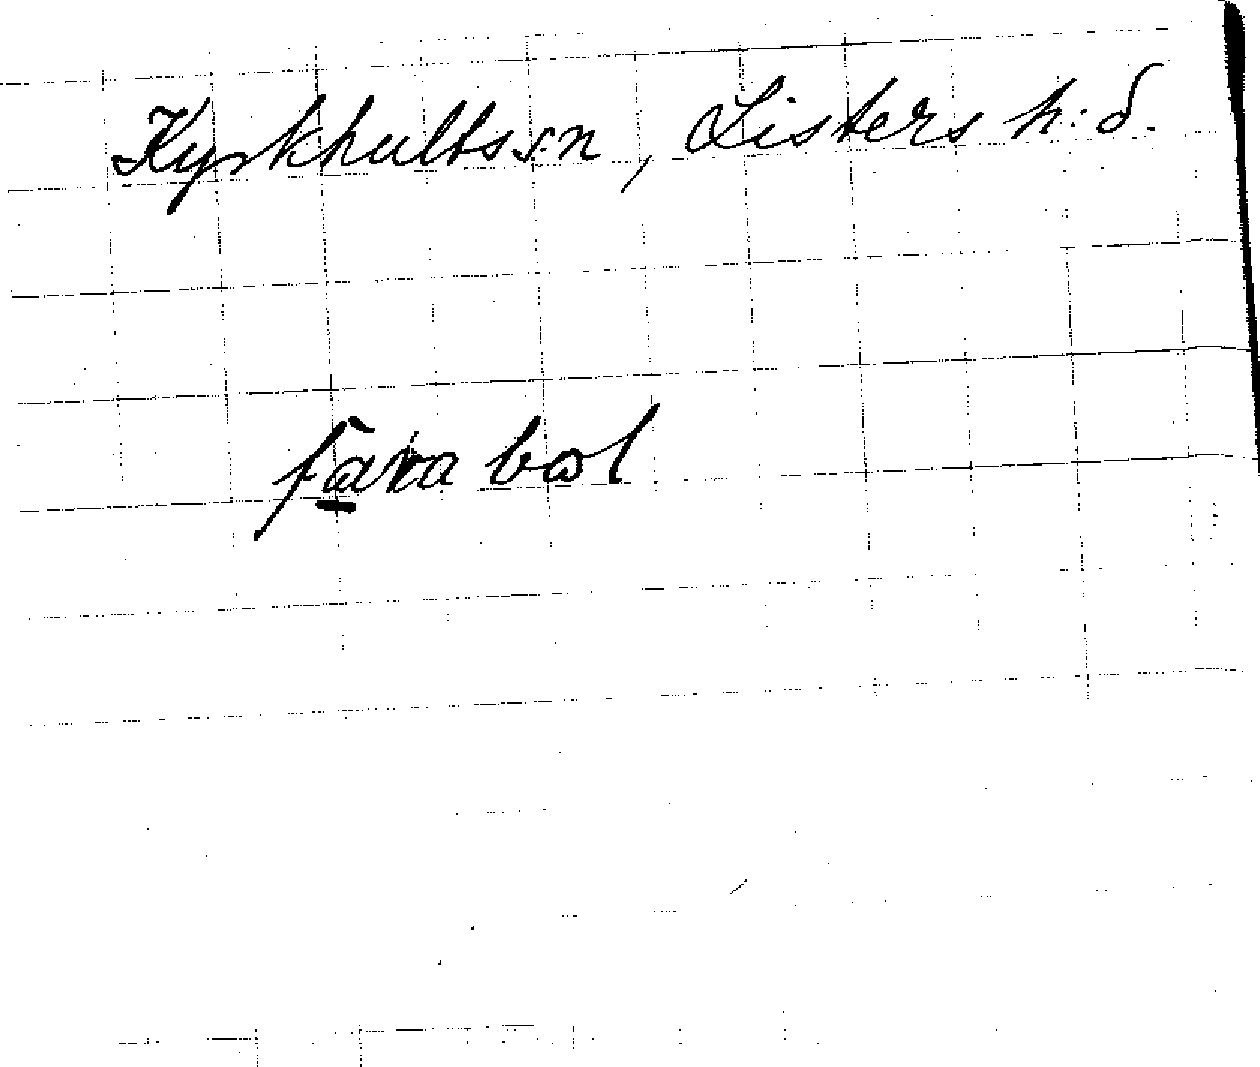 Kyrkhults sn, Listers h:d.
fara bol